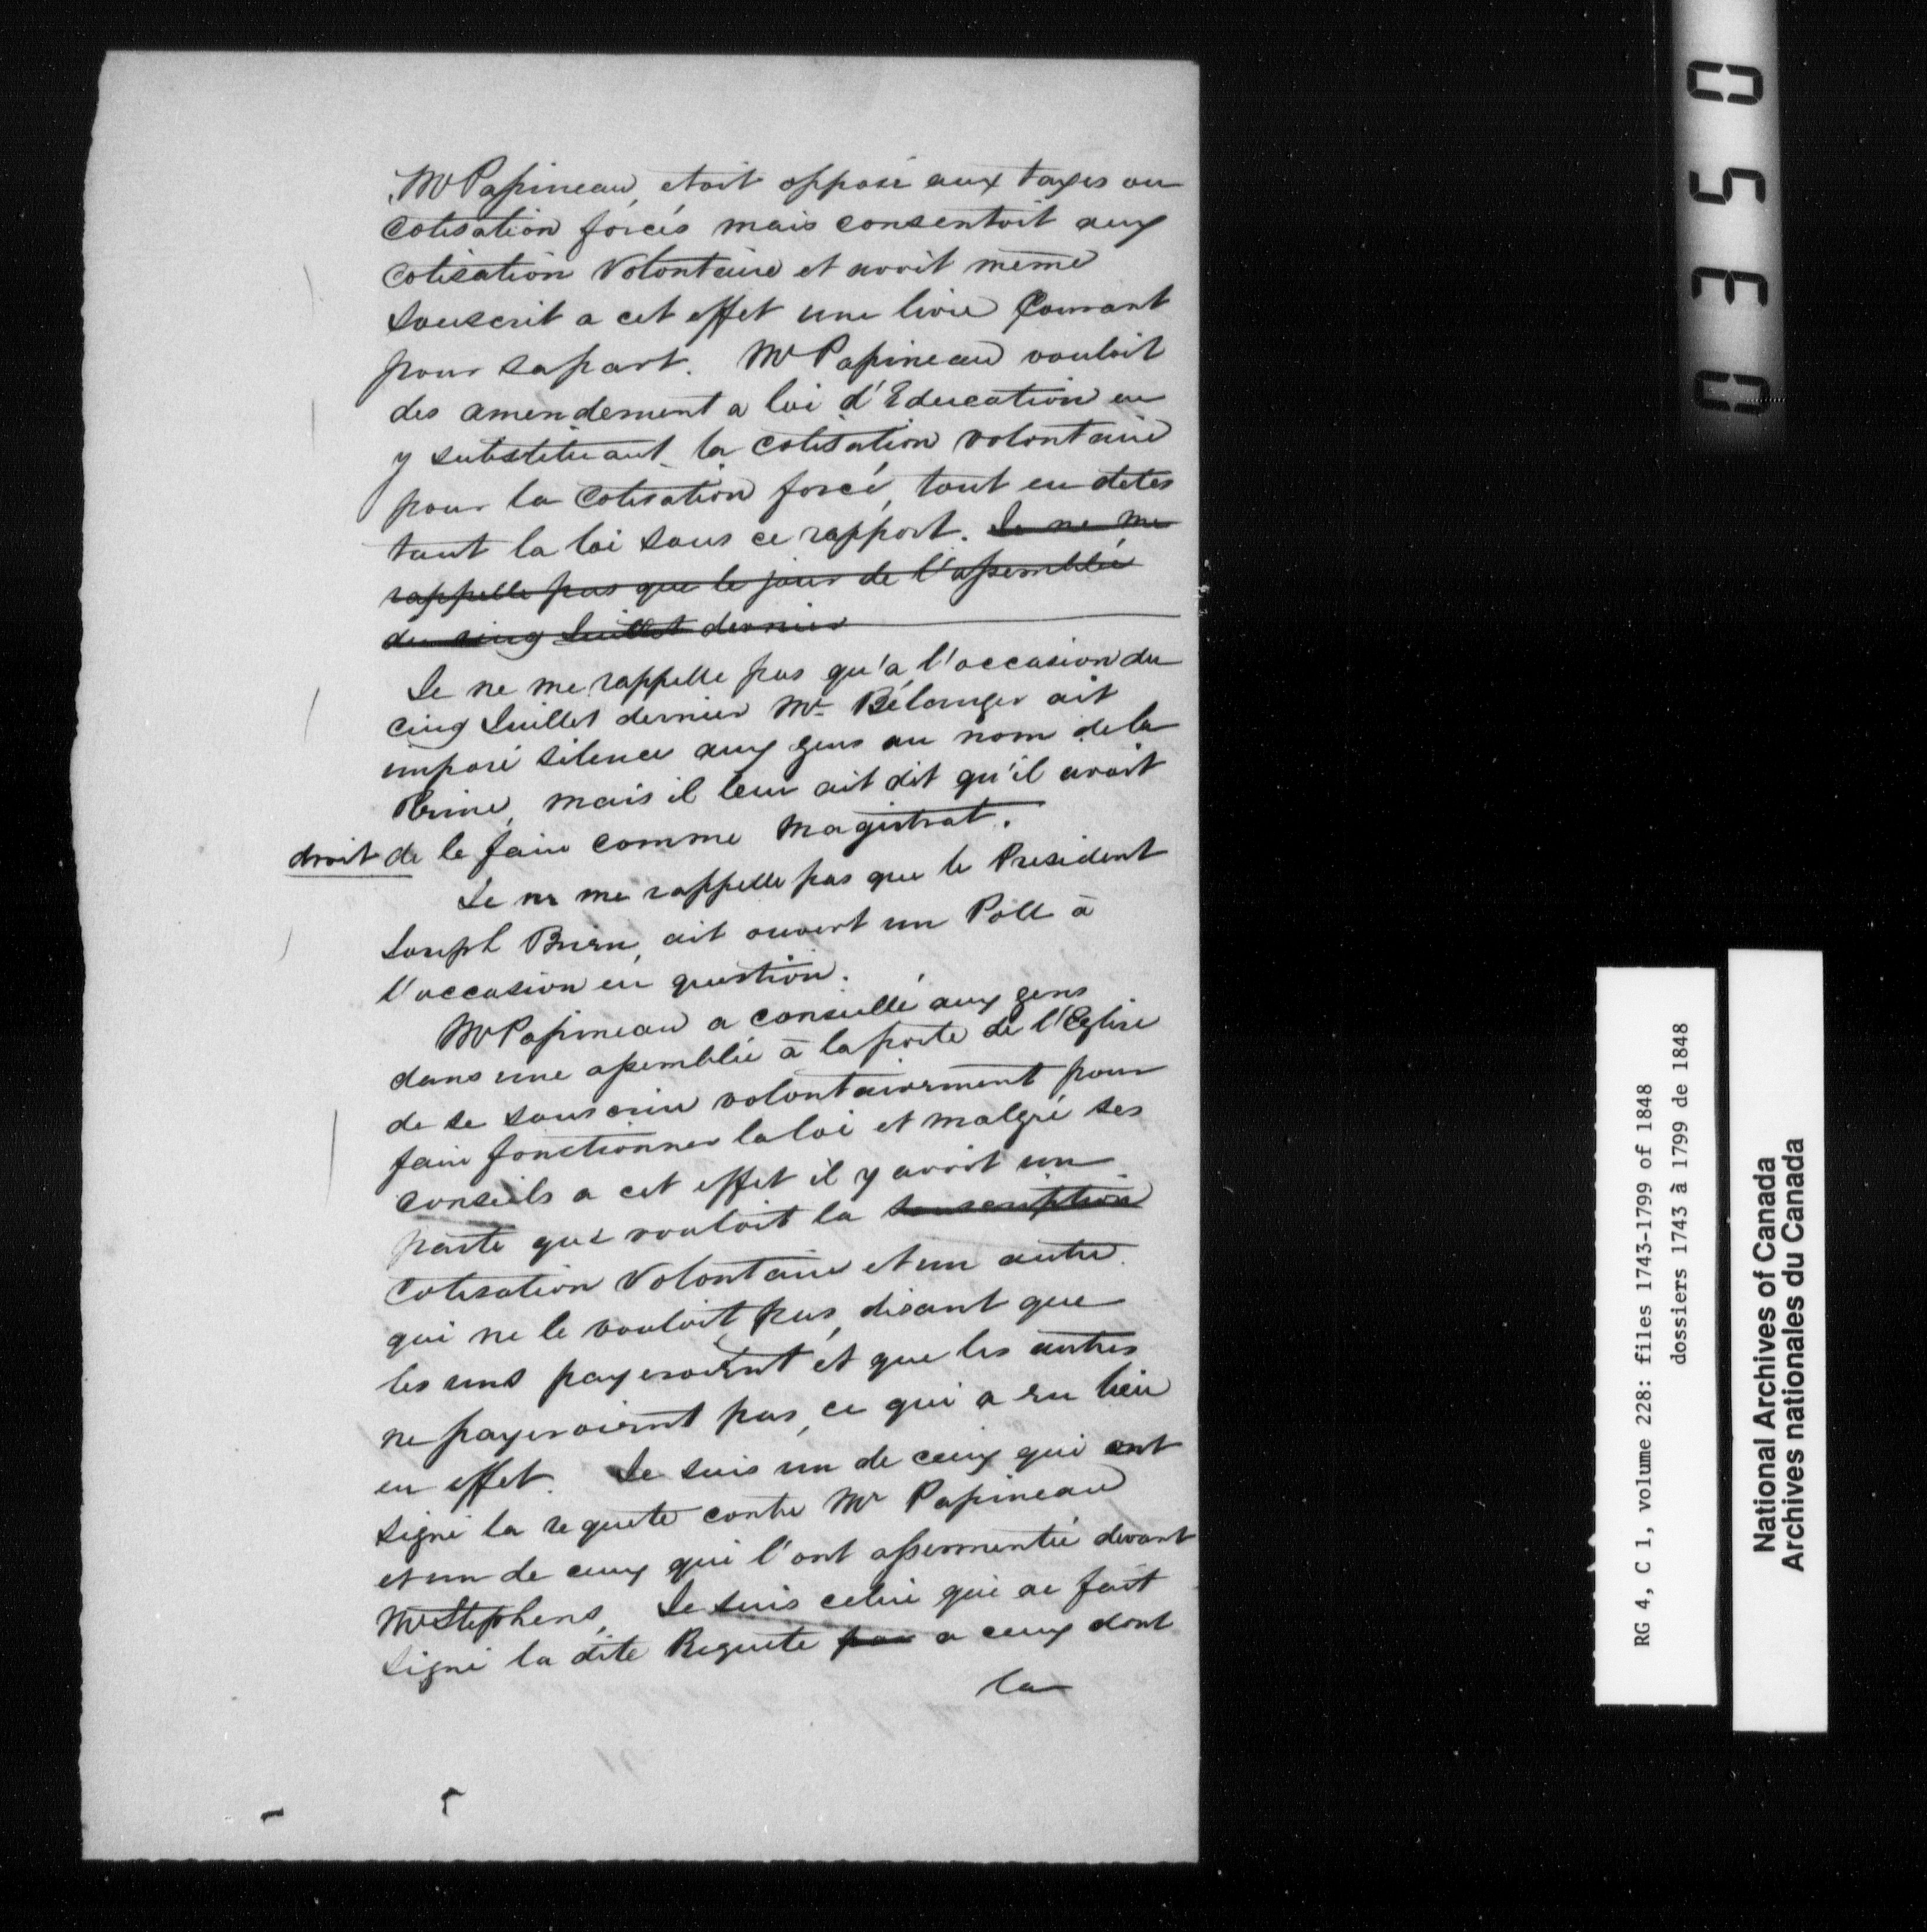 Mr Papineau, etoit opposé aux taxes ou
Cotisation forcés mais consentoit aux
Cotisation Volontaire et avoit même
Souscrit a cet effet une livre Courant
pour sa part. Mr Papineau vouloit
des amendement a loi d'Education en
y substituant la cotisation volontaire
pour la Cotisation forcé, tout en detes
tant la loi sous ce rapport. Je ne me
rappelle pas que le jour de l'assemblée
du cinq Juillet dernier
Je ne me rappelle pas qu'a l'occasion du
cinq Juillet dernier Mr Bélanger ait
imposé silence aux gens au nom de la
Reine, mais il leur ait dit qu'il avoit
droit de le faire comme Magistrat.
Je ne me rappelle pas que le President
Joseph ait ouvert un Poll à
l'occasion en question.
Mr Papineau a conseillé aux gens
dans une assemblée à la porte de l'Eglise
de se souscrire volontairement pour
faire fonctionner la loi et malgré ses
conseils a cet effet il y avoit un
parte qui vouloit la souscription
Cotisation Volontaire et un autre
qui ne le vouloit pas, disant que
les uns payeroient et que les autres
ne payeroient pas, ce qui a eu lieu
en effet. Je suis un de ceux qui ont
signé la requete contre Mr Papineau
et un de ceux qui l'ont assermentée devant
Mr Stephens, Je suis celui qui ai fait
signé la dite Requete par a ceux dont
la
0350
RG 4, C 1, volume 228: files 1743-1799 of 1848
dossiers 1743 à 1799 de 1848
National Archives of Canada
Archives nationales du Canada